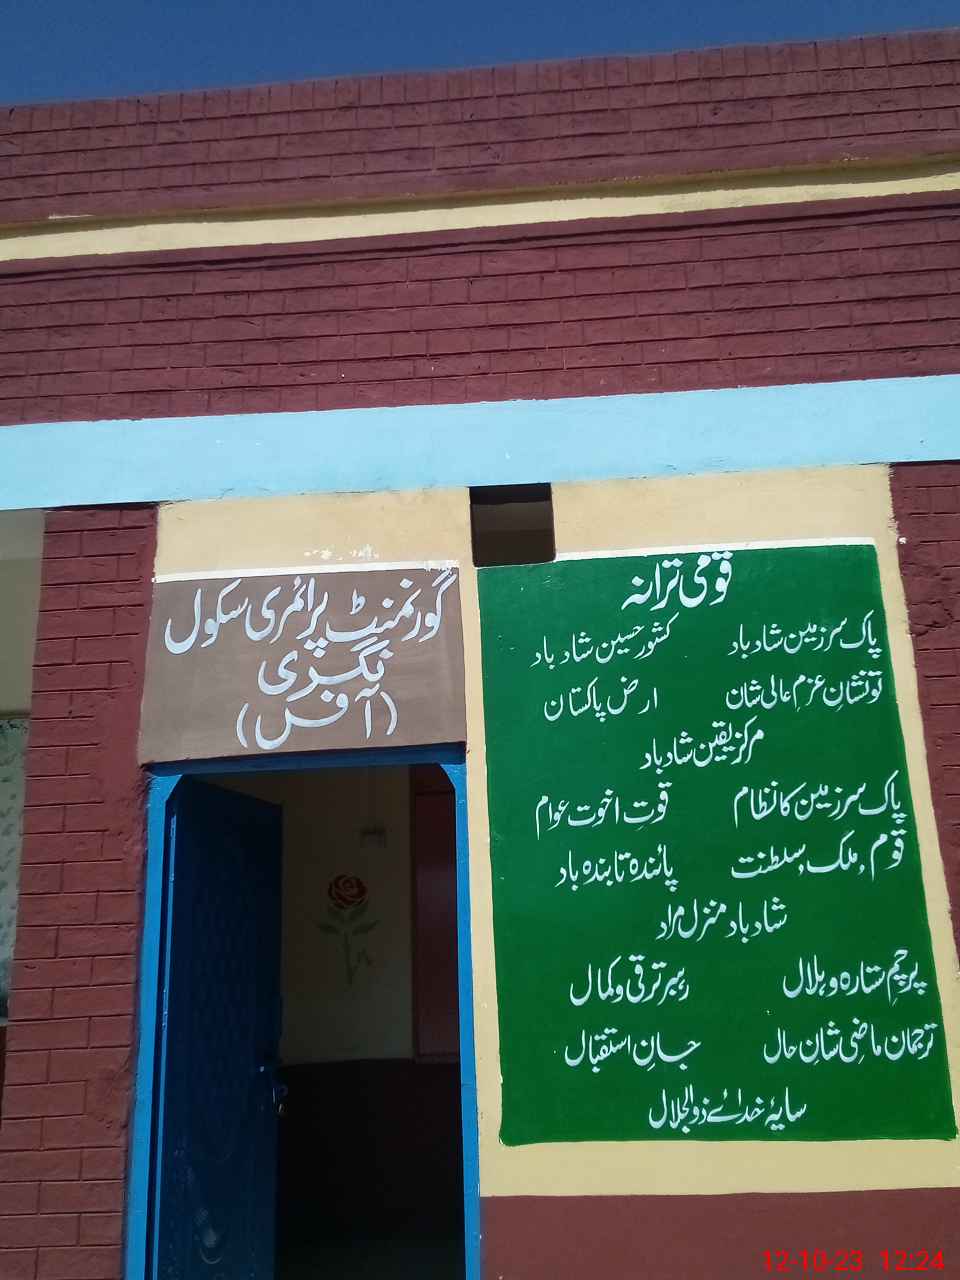 گورنمنٹ پرائمری سکول
نگری
(آفس)
قومی ترانہ
پاک سرزمین شاد باد کشور حسین شاد باد
تو نشانِ عزم عالی شان ارض پاکستان
مرکز یقین شاد باد
پاک سرزمین کا نظام قوتِ اخوت عوام
قوم , ملک , سلطنت پائندہ تابندہ باد
شاد باد منزل مراد
پرچمِ ستارہ و ہلال رہبر ترقی و کمال
ترجمان ماضی شانِ حال جانِ استقبال
سایۂ خدائے ذوالجلال
12-10-23 12:24